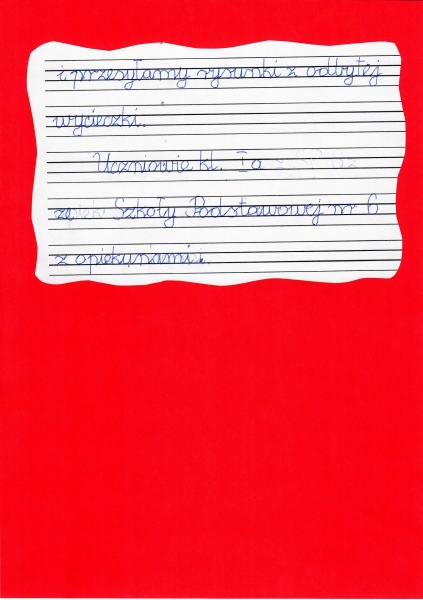 i przesyłamy rysunki z odbytej
wycieczki.
Uczniowie kl. Ia
ze Szkoły Podstawowej nr 6
z opiekunami.